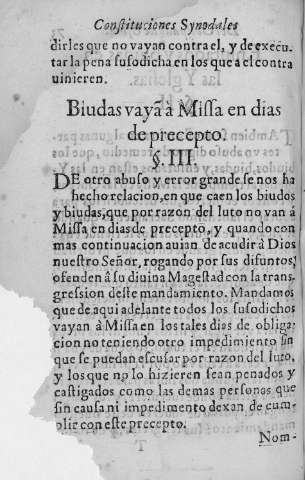 Constituciones Synodales
dirles que no vayan contra el, y de execu-
tar la pena susodicha en los que a el contra
uinieren.
Biudas vayã à Missa en dias
de precepto.
§. III.
DE otro abuso y error grande se nos ha
hecho relacion, en que caen los biudos
y biudas, que por razon del luto no van á
Missa en dias de precepto, y quando con
mas continuacion auian de acudir â Dios
nuestro Señor, rogando por sus difuntos,
ofenden â su diuina Magestad con la trans-
gression deste mandamiento. Mandamos
que de aqui adelante todos los susodichos
vayan à Missa en los tales dias de obliga-
cion no teniendo otro impedimiento sin
que se puedan escusar por razon del luto,
y los que no lo hizieren sean penados y
castigados como las demas personas que
sin causa ni impedimento dexan de cum-
plir con este precepto.
Nom-